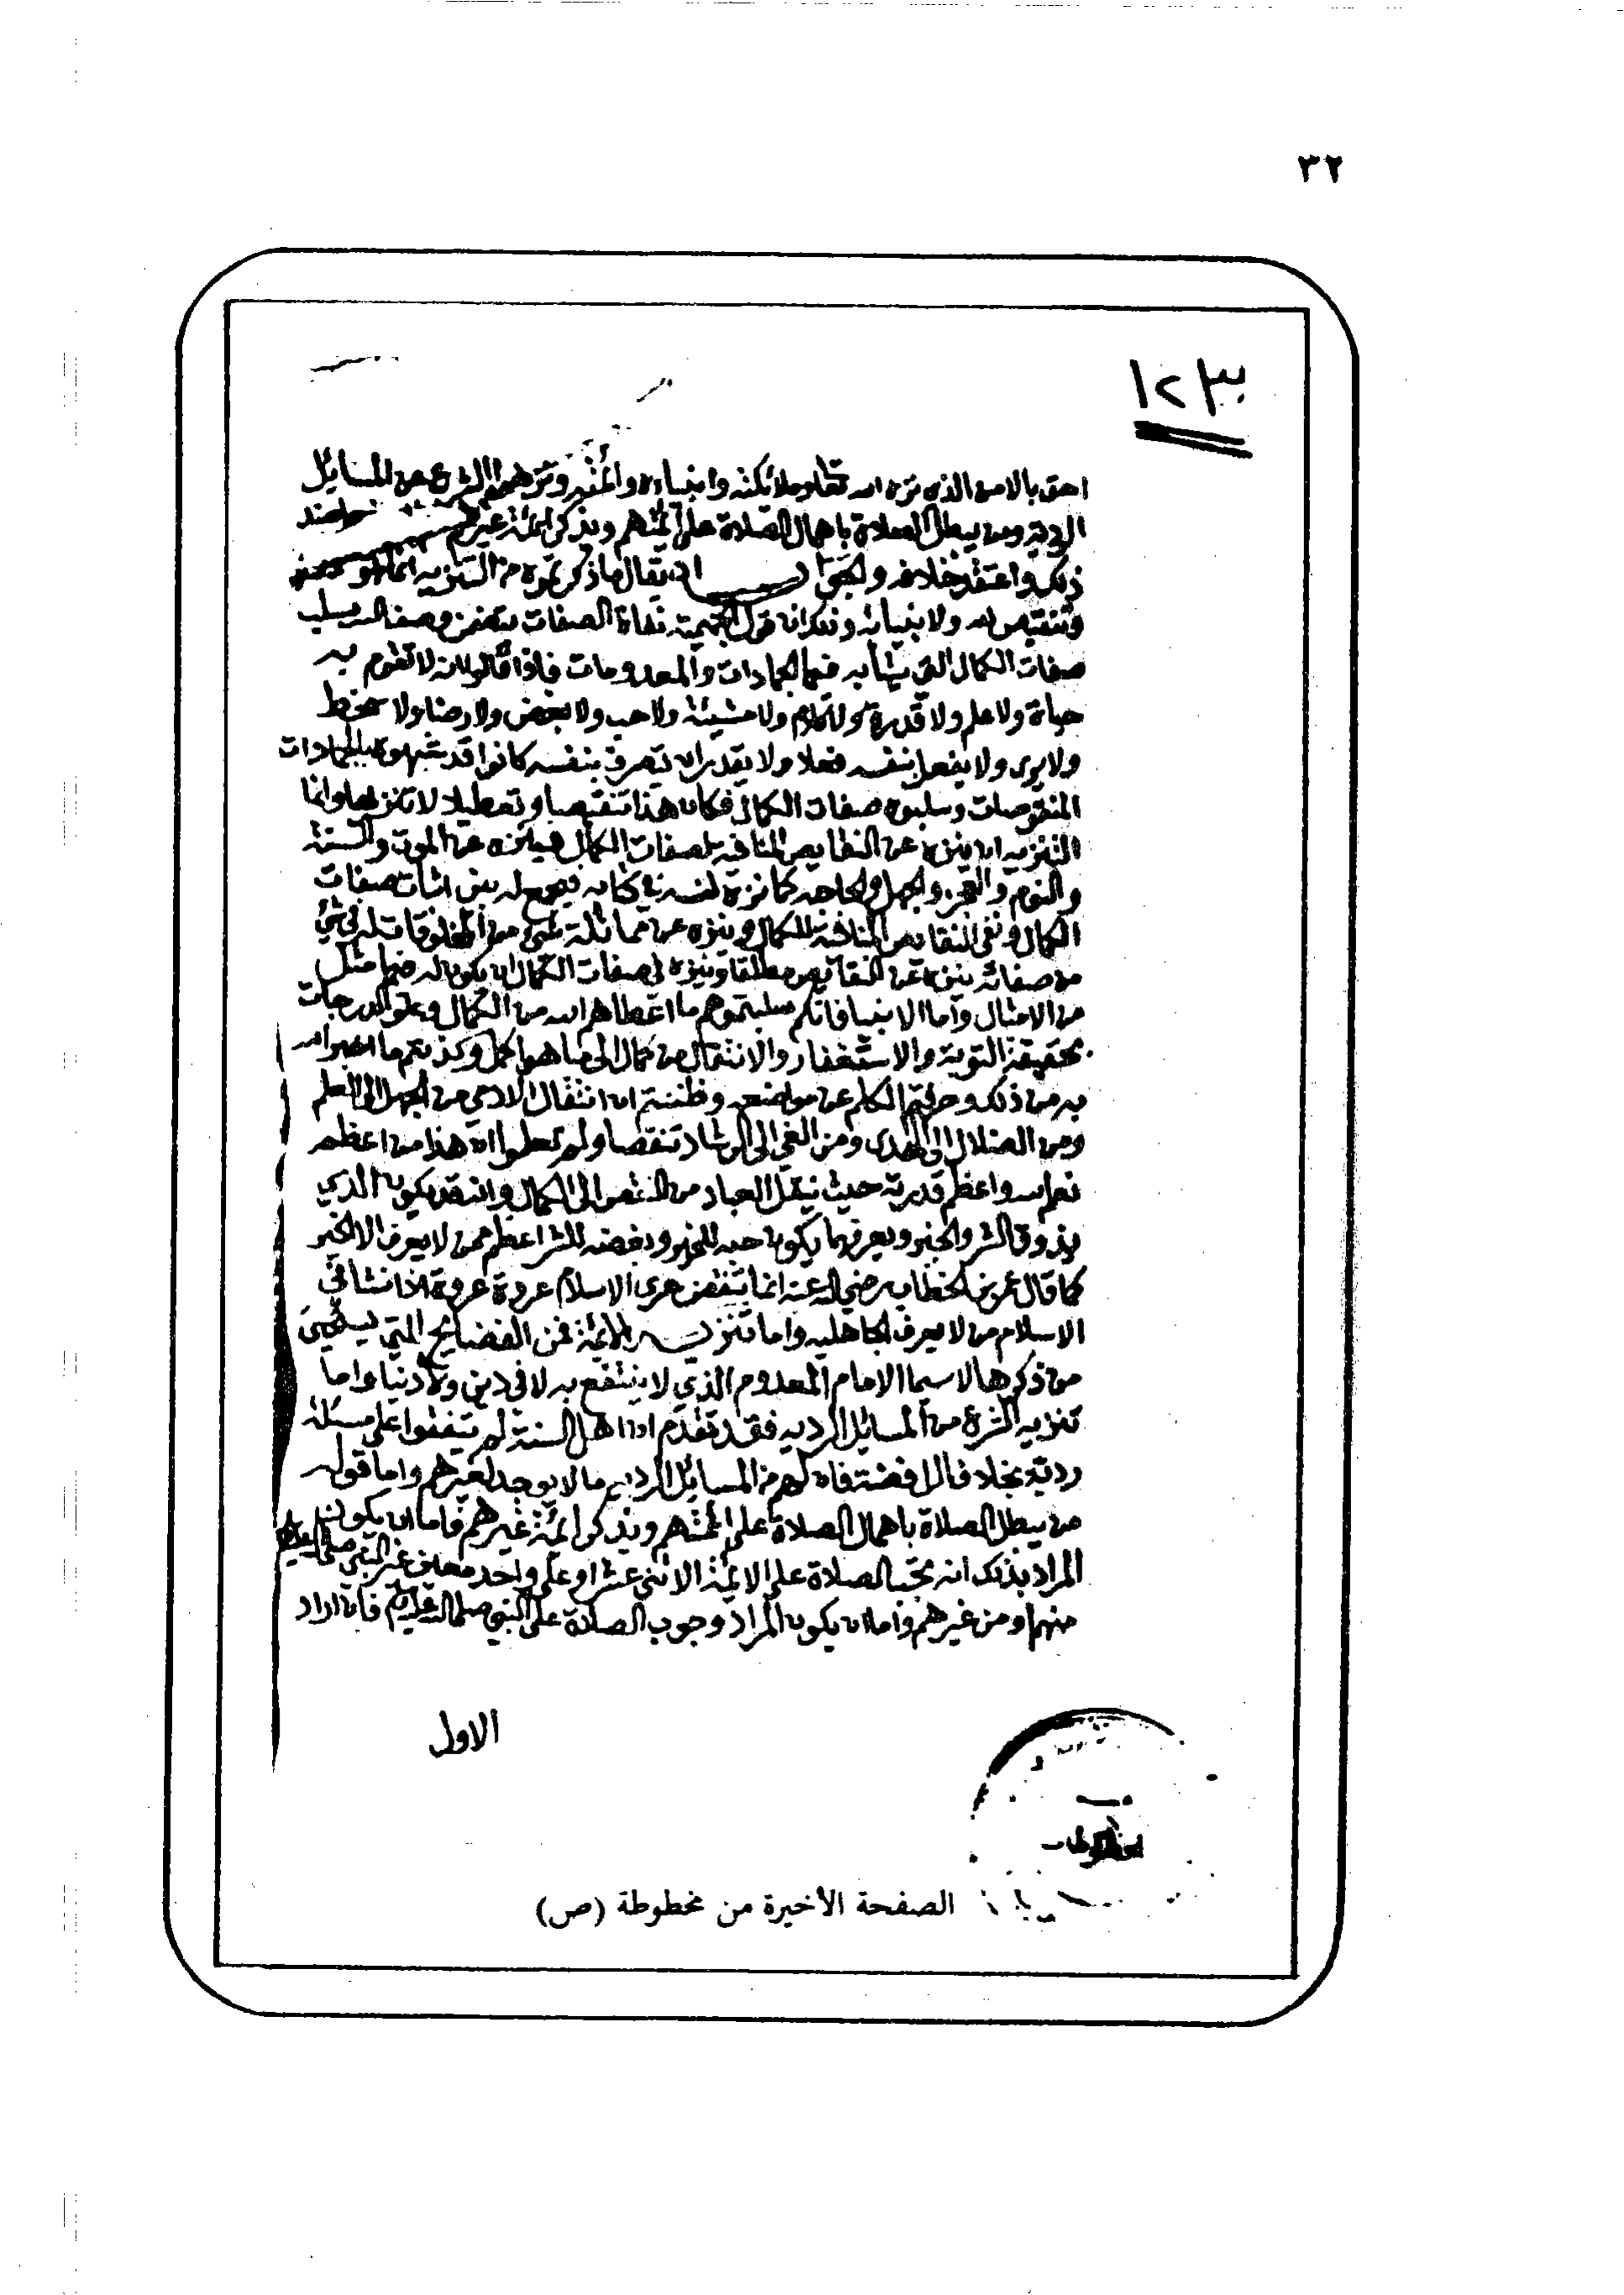 ٣٢
١٢٣
احق بالامن الذي نزه الله تعالى وملائكته وانبياءه وائمته ونزه الشرع عن المسايل
الردية ومن يبطل الصلاة باهمال الصلاة على ائمتهم ويذكر ائمة غيرهم
ذلك واعتقد خلافه والجواب ان يقال ما ذكرتموه من التنزيه انما هو
وتنقيص لله ولانبيائه وذلك ان قول الجهمية نفاة الصفات يتضمن وصف الله بسلب
صفات الكمال التي يشابه فيها الجمادات والمعدومات فاذا قالوا انه لا تقوم به
حياة ولا علم ولا قدرة ولا كلام ولا مشيئة ولا حب ولا بغض ولا رضا ولا سخط
ولا يرى ولا يفعل بنفسه فعلا ولا يقدر ان يتصرف بنفسه كانوا قد شبهوه بالجمادات
المنقوصات وسلبوه صفات الكمال فكان هذا تنقيصا وتعطيلا لا تنزيها وانما
التنزيه ان ينزه عن النقايص المنافية لصفات الكمال فينزه عن الموت والسنة
والنوم والعجز والجهل والحاجه كما نزه نفسه في كتابه فيجمع له بين اثبات صفات
الكمال ونفي النقايص المنافية للكمال وينزه عن مماثلة شي من المخلوقات له في شي
من صفاته ينزه عن النقايص مطلقا وينزه في صفات الكمال ان يكون له فيها مثل
من الامثال واما الانبيا فانكم سلبتموهم ما اعطاهم الله من الكمال وعلو الدرجات
بحقيقة التوبة والاستغفار والانتقال من كمال الى ما هو اكمل وكذبتم ما اخبر الله
به من ذلك وحرفتم الكلم عن مواضعه وظننتم ان انتقال الادمي من الجهل الى العلم
ومن الضلال الى الهدى ومن الغي الى الرشاد تنقصا ولم تعلموا ان هذا من اعظم
نعم الله واعظم قدرته حيث ينقل العباد من النقص الى الكمال وانه قد يكون الذي
يذوق الشر والخير ويعرفهما يكون حبه للخير وبغضه للشر اعظم ممن لا يعرف الا الخير
كما قال عمر بن الخطاب رضي الله عنه انما تنقض عرى الاسلام عروة عروة اذا نشا في
الاسلام من لا يعرف الجاهليه واما تنزيه الايمة فمن الفضايح التي يستحيى
من ذكرها لا سيما الامام المعدوم الذي لا ينتفع به لا في دين ولا دنيا واما
تنزيه الشرع من المسايل الرديه فقد تقدم ان اهل السنة لم يتفقوا على مسئلة
ردية بخلاف الرافضة فان لهم من المسايل الرديه ما لا يوجد لغيرهم واما قوله
من يبطل الصلاة باهمال الصلاة على ائمتهم ويذكر ائمة غيرهم فاما ان يكون
المراد بذلك انه تجب الصلاة على الايمة الاثني عشر او على واحد معين غير النبي صلى الله عليه وسلم
منهم او من غيرهم واما ان يكون المراد وجوب الصلاة على النبي صلى الله عليه وسلم فان اراد
الاول
الصفحة الأخيرة من مخطوطة (ص)